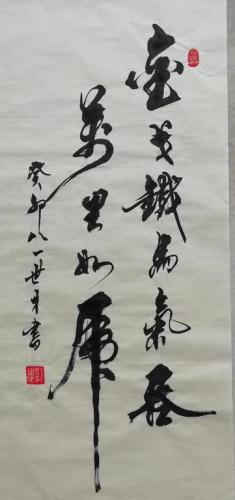 金戈鐵馬氣吞
萬里如虎
癸卯八一世平書